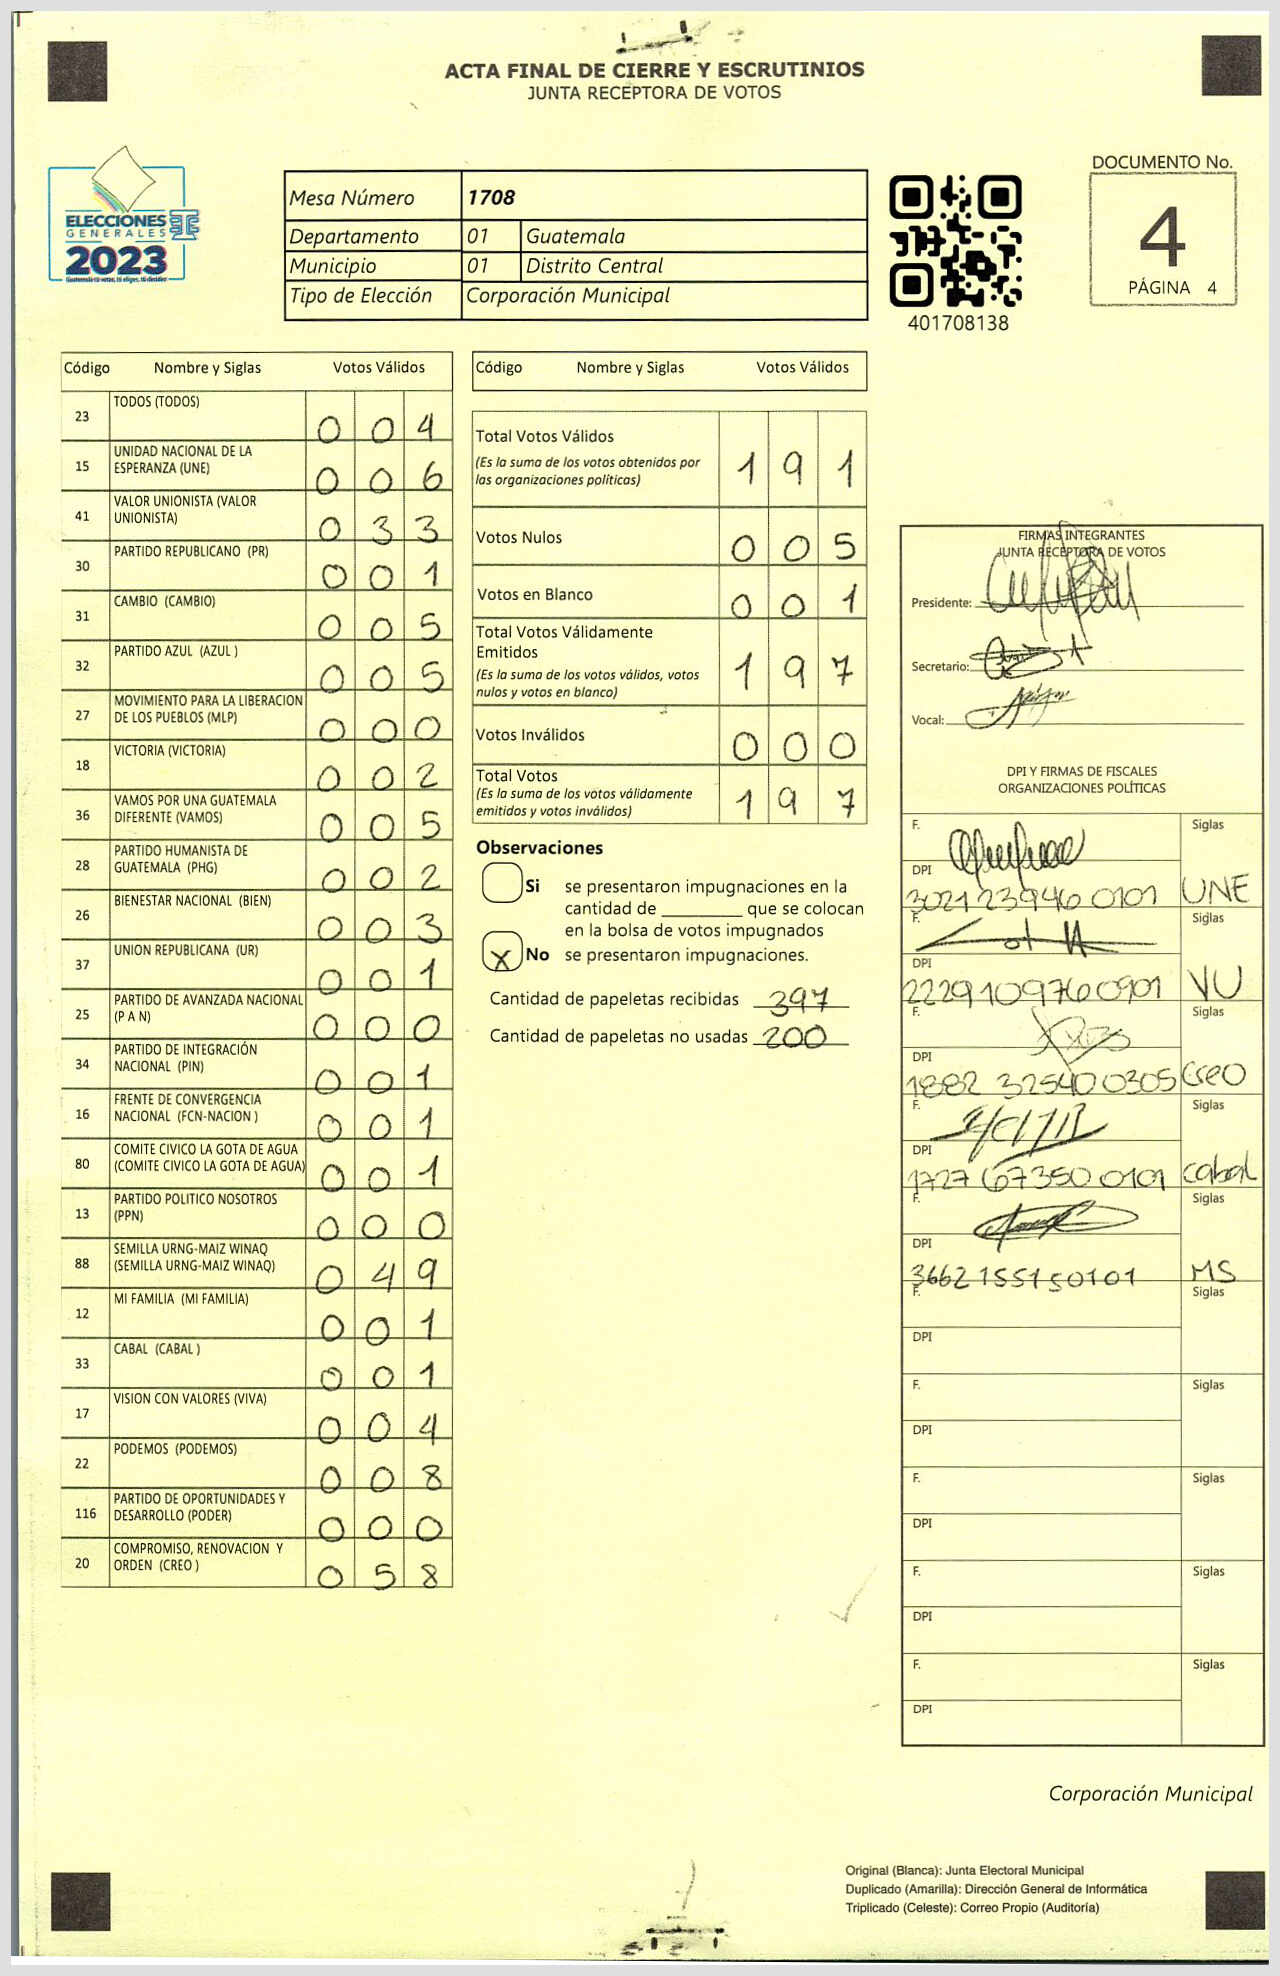 ACTA FINAL DE CIERRE Y ESCRUTINIOS
JUNTA RECEPTORA DE VOTOS
ELECCIONES
GENERALES
2023
Mesa Número 1708
Departamento 01 Guatemala
Municipio 01 Distrito Central
Tipo de Elección Corporación Municipal
401708138
DOCUMENTO No.
4
PÁGINA 4
Código Nombre y Siglas Votos Válidos
23 TODOS (TODOS) 0 0 4
15 UNIDAD NACIONAL DE LA
ESPERANZA (UNE) 0 0 6
41 VALOR UNIONISTA (VALOR
UNIONISTA) 0 3 3
30 PARTIDO REPUBLICANO (PR) 0 0 1
31 CAMBIO (CAMBIO) 0 0 5
32 PARTIDO AZUL (AZUL ) 0 0 5
27 MOVIMIENTO PARA LA LIBERACION
DE LOS PUEBLOS (MLP) 0 0 0
18 VICTORIA (VICTORIA) 0 0 2
36 VAMOS POR UNA GUATEMALA
DIFERENTE (VAMOS) 0 0 5
28 PARTIDO HUMANISTA DE
GUATEMALA (PHG) 0 0 2
26 BIENESTAR NACIONAL (BIEN) 0 0 3
37 UNION REPUBLICANA (UR) 0 0 1
25 PARTIDO DE AVANZADA NACIONAL
(P A N) 0 0 0
34 PARTIDO DE INTEGRACIÓN
NACIONAL (PIN) 0 0 1
16 FRENTE DE CONVERGENCIA
NACIONAL (FCN-NACION ) 0 0 1
80 COMITE CIVICO LA GOTA DE AGUA
(COMITE CIVICO LA GOTA DE AGUA) 0 0 1
13 PARTIDO POLITICO NOSOTROS
(PPN) 0 0 0
88 SEMILLA URNG-MAIZ WINAQ
(SEMILLA URNG-MAIZ WINAQ) 0 4 9
12 MI FAMILIA (MI FAMILIA) 0 0 1
33 CABAL (CABAL ) 0 0 1
17 VISION CON VALORES (VIVA) 0 0 4
22 PODEMOS (PODEMOS) 0 0 8
116 PARTIDO DE OPORTUNIDADES Y
DESARROLLO (PODER) 0 0 0
20 COMPROMISO, RENOVACION Y
ORDEN (CREO ) 0 5 8
Código Nombre y Siglas Votos Válidos
Total Votos Válidos 1 9 1
(Es la suma de los votos obtenidos por
las organizaciones políticas)
Votos Nulos 0 0 5
Votos en Blanco 0 0 1
Total Votos Válidamente
Emitidos 1 9 7
(Es la suma de los votos válidos, votos
nulos y votos en blanco)
Votos Inválidos 0 0 0
Total Votos
(Es la suma de los votos válidamente
emitidos y votos inválidos) 1 9 7
Observaciones
Si se presentaron impugnaciones en la
cantidad de ________ que se colocan
en la bolsa de votos impugnados
X No se presentaron impugnaciones.
Cantidad de papeletas recibidas 397
Cantidad de papeletas no usadas 200
FIRMAS INTEGRANTES
JUNTA RECEPTORA DE VOTOS
Presidente:
Secretario:
Vocal:
DPI Y FIRMAS DE FISCALES
ORGANIZACIONES POLÍTICAS
F. Siglas
DPI
3021 23946 0101 UNE
F. Siglas
DPI
2229109760901 VU
F. Siglas
DPI
1882 32540 0305 Creo
F. Siglas
DPI
1727 67350 0101 cabal
F. Siglas
DPI
3662155150101 MS
F. Siglas
DPI
F. Siglas
DPI
F. Siglas
DPI
F. Siglas
DPI
F. Siglas
DPI
Corporación Municipal
Original (Blanca): Junta Electoral Municipal
Duplicado (Amarilla): Dirección General de Informática
Triplicado (Celeste): Correo Propio (Auditoría)